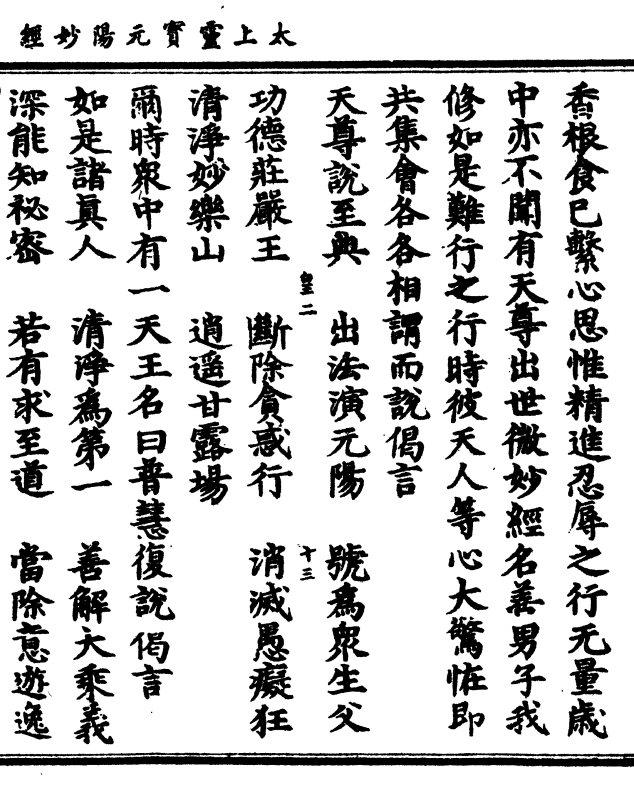 太上靈寶元陽妙經
香根食已繫心思惟精進忍辱之行无量歲
中亦不聞有天尊出世微妙經名善男子我
修如是難行之行時彼天人等心大驚恠即
共集會各各相謂而說偈言
天尊說至典 出法演元陽 號為衆生父
皇二 十三
功德莊嚴王 斷除貪惑行 消滅愚癡狂
清淨妙樂山 逍遥甘露場
爾時衆中有一天王名曰普慧復說偈言
如是諸真人 清淨為第一 善解大乘義
深能知祕密 若有求至道 當除意遊逸